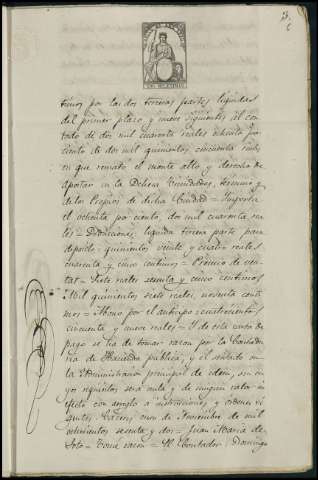 timos por las dos terceras partes liquidas
del primer plazo, y nueve siguientes al con-
tado de dos mil cuarenta reales ochenta por
ciento de dos mil quinientos cincuenta reales
en que remató el monte alto y derecho de
apostar en la Dehesa término
de los Propios de dicha Ciudad = Importa
el ochenta por ciento, dos mil cuarenta rea-
les = Deducciones: liquida tercera parte para
deposito = quinientos veinte y cuatro reales
cuarenta y cinco centimos = Premio de ven-
tas = Siete reales sesenta y cinco centimos
Mil quinientos siete reales, noventa centi-
mos = Abono por el anticipo = cuatrocientos
cincuenta y nueve reales = Y de esta carta de
pago se ha de tomar razon por la Contadu-
ria de Hacienda publica, y el sentado en
la Administracion principal de idem, sin cu-
yos requisitos será nula y de ningun valor ni
efecto con arreglo a instrucciones y ordenes vi-
gentes. Caceres, once de Noviembre de mil
ochocientos sesenta y dos = Juan Maria de
Soto = Tomé razon = El Contador, Domingo